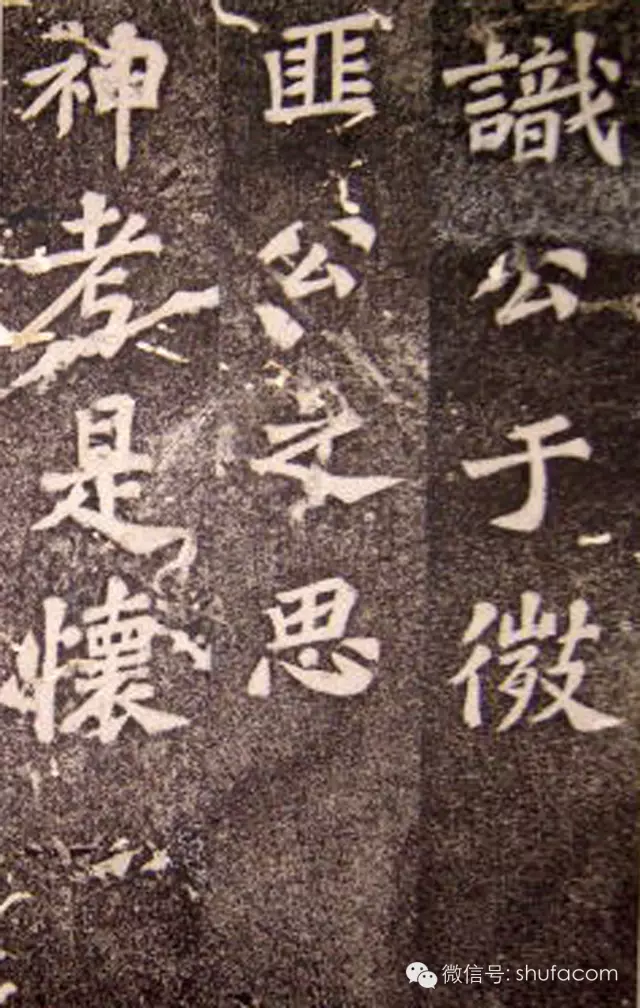 識公于微
匪公之思
神考是懷
微信号: shufacom